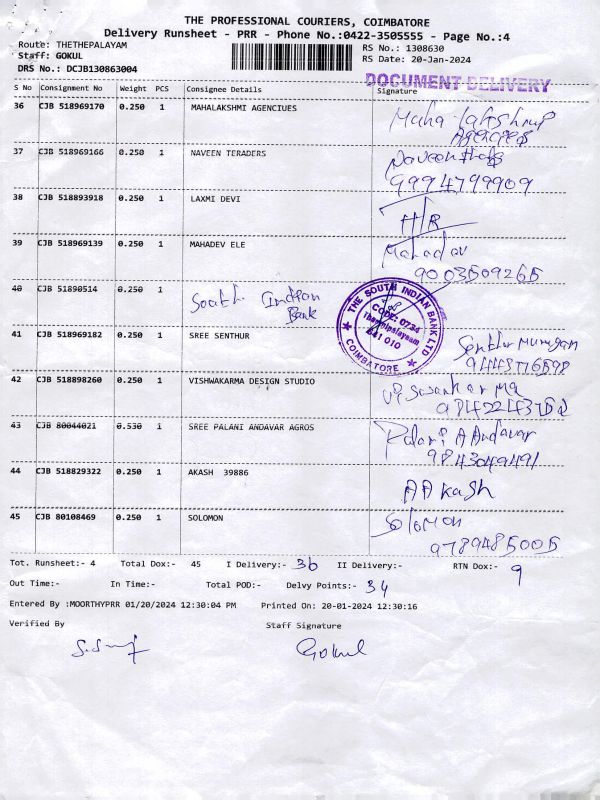 THE PROFESSIONAL COURIERS, COIMBATORE
Delivery Runsheet - PRR - Phone No.:0422-3505555 - Page No.:4
Route: THETHEPALAYAM RS No.: 1308630
Staff: GOKUL RS Date: 20-Jan-2024
DRS No.: DCJB130863004
DOCUMENT DELIVERY
S No Consignment No Weight PCS Consignee Details Signature
36 CJB 518969170 0.250 1 MAHALAKSHMI AGENCIUES Maha
37 CJB 518969166 0.250 1 NAVEEN TERADERS Naveen
9994799909
38 CJB 518893918 0.250 1 LAXMI DEVI H/R
39 CJB 518969139 0.250 1 MAHADEV ELE Mahadav
9003509265
40 CJB 51890514 0.250 1 South Indian Bank
THE SOUTH INDIAN BANK LTD
CODE: 0734
Thethipalayam
641 010
COIMBATORE
41 CJB 518969182 0.250 1 SREE SENTHUR Senthur Murugan
42 CJB 518898260 0.250 1 VISHWAKARMA DESIGN STUDIO
43 CJB 80044021 0.530 1 SREE PALANI ANDAVAR AGROS Palani Andavar
9843049491
44 CJB 518829322 0.250 1 AKASH 39886 AAkash
45 CJB 80108469 0.250 1 SOLOMON Solomon
9789485005
Tot. Runsheet:- 4 Total Dox:- 45 I Delivery:- 36 II Delivery:- RTN Dox:- 9
Out Time:- In Time:- Total POD:- Delvy Points:- 34
Entered By :MOORTHYPRR 01/20/2024 12:30:04 PM Printed On: 20-01-2024 12:30:16
Verified By Staff Signature
Gokul